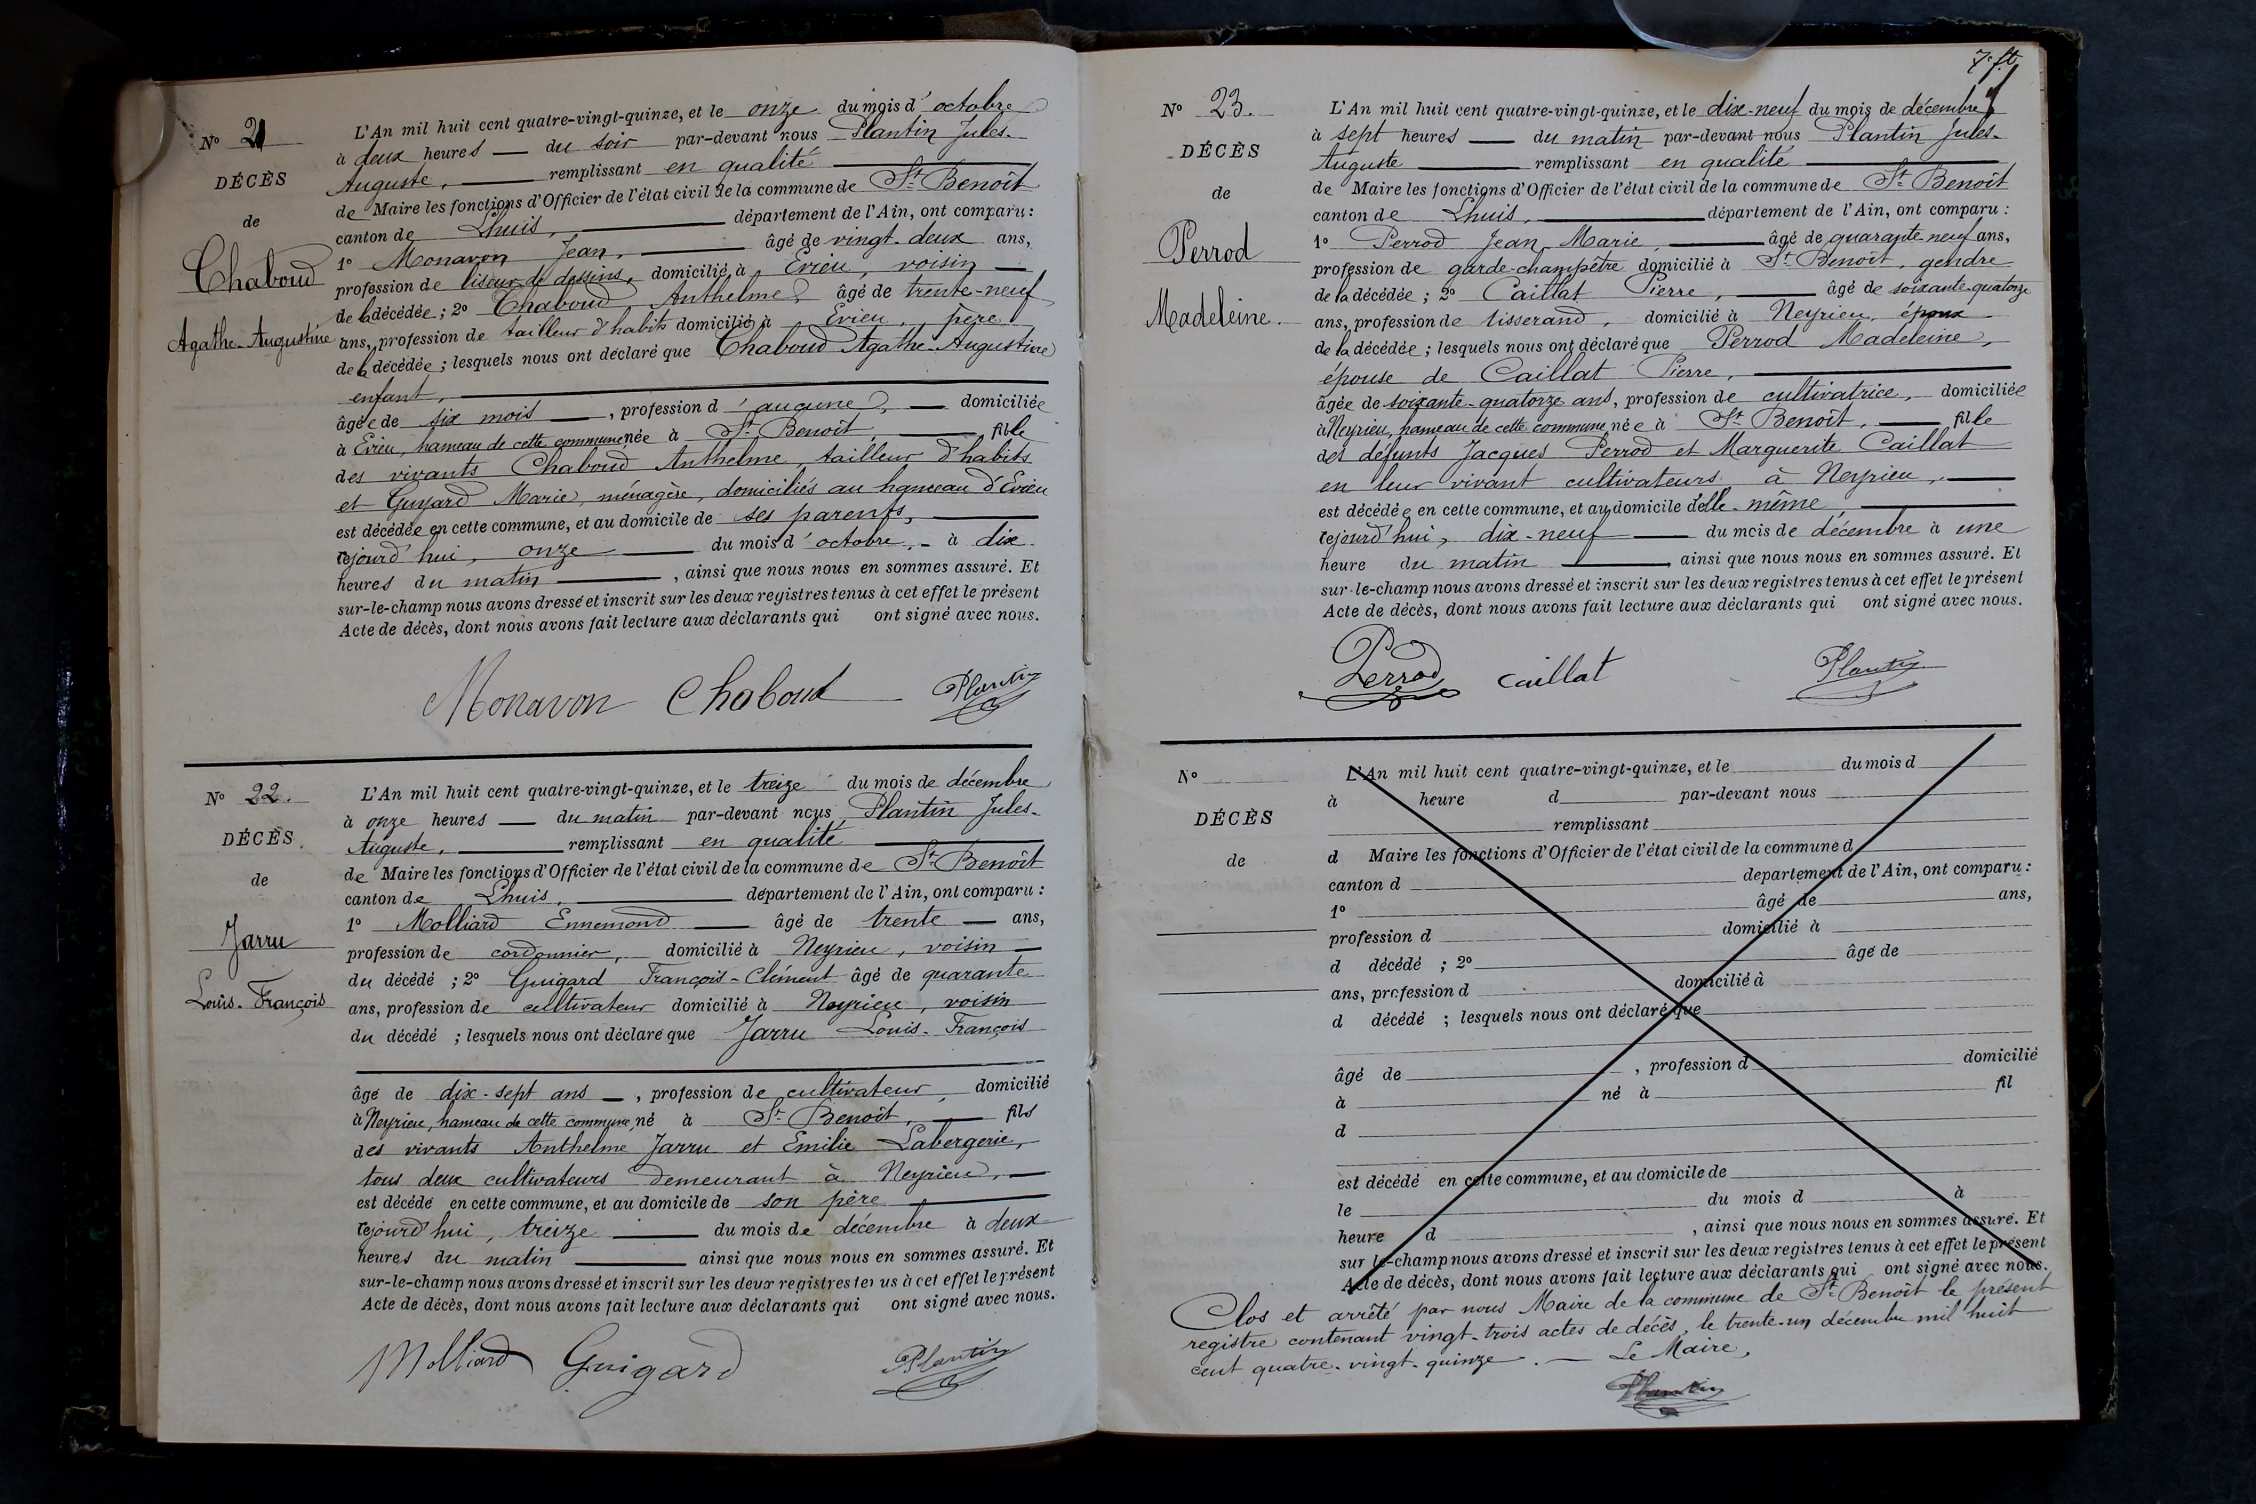 N° 21
DÉCÈS
de
Chaboud
Agathe-Augustine
L'An mil huit cent quatre-vingt-quinze, et le onze du mois d'octobre
à deux heures — du soir par-devant nous Plantin Jules-
Auguste, — remplissant en qualité —
de Maire les fonctions d'Officier de l'état civil de la commune de St Benoît
canton de Lhuis, — département de l'Ain, ont comparu :
1° Monavon Jean, — âgé de vingt-deux ans,
profession de liseur de dessins, domicilié à Evieu, voisin —
de la décédée ; 2° Chaboud Anthelme, âgé de trente-neuf
ans, profession de tailleur d'habits domicilié à Evieu, père
de la décédée ; lesquels nous ont déclaré que Chaboud Agathe-Augustine
enfant, —
âgée de six mois —, profession d'aucune, — domiciliée
à Evieu, hameau de cette commune née à St Benoît, — fille
des vivants Chaboud Anthelme, tailleur d'habits
et Guyard Marie, ménagère, domiciliés au hameau d'Evieu
est décédée en cette commune, et au domicile de ses parents, —
cejourd'hui, onze — du mois d'octobre, - à dix
heures du matin —, ainsi que nous nous en sommes assuré. Et
sur-le-champ nous avons dressé et inscrit sur les deux registres tenus à cet effet le présent
Acte de décès, dont nous avons fait lecture aux déclarants qui ont signé avec nous.
Monavon Chaboud Plantin
N° 22.
DÉCÈS
de
Jarru
Louis-François
L'An mil huit cent quatre-vingt-quinze, et le treize du mois de décembre
à onze heures — du matin par-devant nous Plantin Jules-
Auguste, — remplissant en qualité —
de Maire les fonctions d'Officier de l'état civil de la commune de St Benoît
canton de Lhuis, — département de l'Ain, ont comparu :
1° Molliard Ennemond — âgé de trente — ans,
profession de cordonnier, domicilié à Neyrieu, voisin —
du décédé ; 2° Guigard François-Clément âgé de quarante
ans, profession de cultivateur domicilié à Neyrieu, voisin
du décédé ; lesquels nous ont déclaré que Jarru Louis-François
âgé de dix-sept ans —, profession de cultivateur, domicilié
à Neyrieu, hameau de cette commune, né à St Benoît, — fils
des vivants Anthelme Jarru et Emilie Labergerie,
tous deux cultivateurs demeurant à Neyrieu, —
est décédé en cette commune, et au domicile de son père —
cejourd'hui, treize — du mois de décembre à deux
heures du matin — ainsi que nous nous en sommes assuré. Et
sur-le-champ nous avons dressé et inscrit sur les deux registres tenus à cet effet le présent
Acte de décès, dont nous avons fait lecture aux déclarants qui ont signé avec nous.
Molliard Guigard Plantin
7e ft
N° 23.
DÉCÈS
de
Perrod
Madeleine.
L'An mil huit cent quatre-vingt-quinze, et le dix-neuf du mois de décembre
à sept heures — du matin par-devant nous Plantin Jules-
Auguste — remplissant en qualité —
de Maire les fonctions d'Officier de l'état civil de la commune de St Benoît
canton de Lhuis, — département de l'Ain, ont comparu :
1° Perrod Jean-Marie, — âgé de quarante neuf ans,
profession de garde-champêtre domicilié à St Benoît, gendre
de la décédée ; 2° Caillat Pierre, — âgé de soixante-quatorze
ans, profession de tisserand, domicilié à Neyrieu, époux
de la décédée ; lesquels nous ont déclaré que Perrod Madeleine,
épouse de Caillat Pierre, —
âgée de soixante-quatorze ans, profession de cultivatrice, domiciliée
à Neyrieu, hameau de cette commune née à St Benoît, — fille
des défunts Jacques Perrod et Marguerite Caillat
en leur vivant cultivateurs à Neyrieu, —
est décédée en cette commune, et au domicile d'elle-même, —
cejourd'hui, dix-neuf — du mois de décembre à une
heure du matin — ainsi que nous nous en sommes assuré. Et
sur-le-champ nous avons dressé et inscrit sur les deux registres tenus à cet effet le présent
Acte de décès, dont nous avons fait lecture aux déclarants qui ont signé avec nous.
Perrod Caillat Plantin
N°
DÉCÈS
de
L'An mil huit cent quatre-vingt-quinze, et le du mois d
à heure d par-devant nous
remplissant
d Maire les fonctions d'Officier de l'état civil de la commune d
canton d département de l'Ain, ont comparu :
1° âgé de ans,
profession d domicilié à
d décédé ; 2° âgé de
ans, profession d domicilié à
d décédé ; lesquels nous ont déclaré que
âgé de , profession d domicilié
à né à fil
d
est décédé en cette commune, et au domicile de
le du mois d à
heure d , ainsi que nous nous en sommes assuré. Et
sur le-champ nous avons dressé et inscrit sur les deux registres tenus à cet effet le présent
Acte de décès, dont nous avons fait lecture aux déclarants qui ont signé avec nous.
Clos et arrêté par nous Maire de la commune de St Benoît le présent
registre contenant vingt-trois actes de décès, le trente-un décembre mil huit
cent quatre-vingt-quinze. — Le Maire,
Plantin